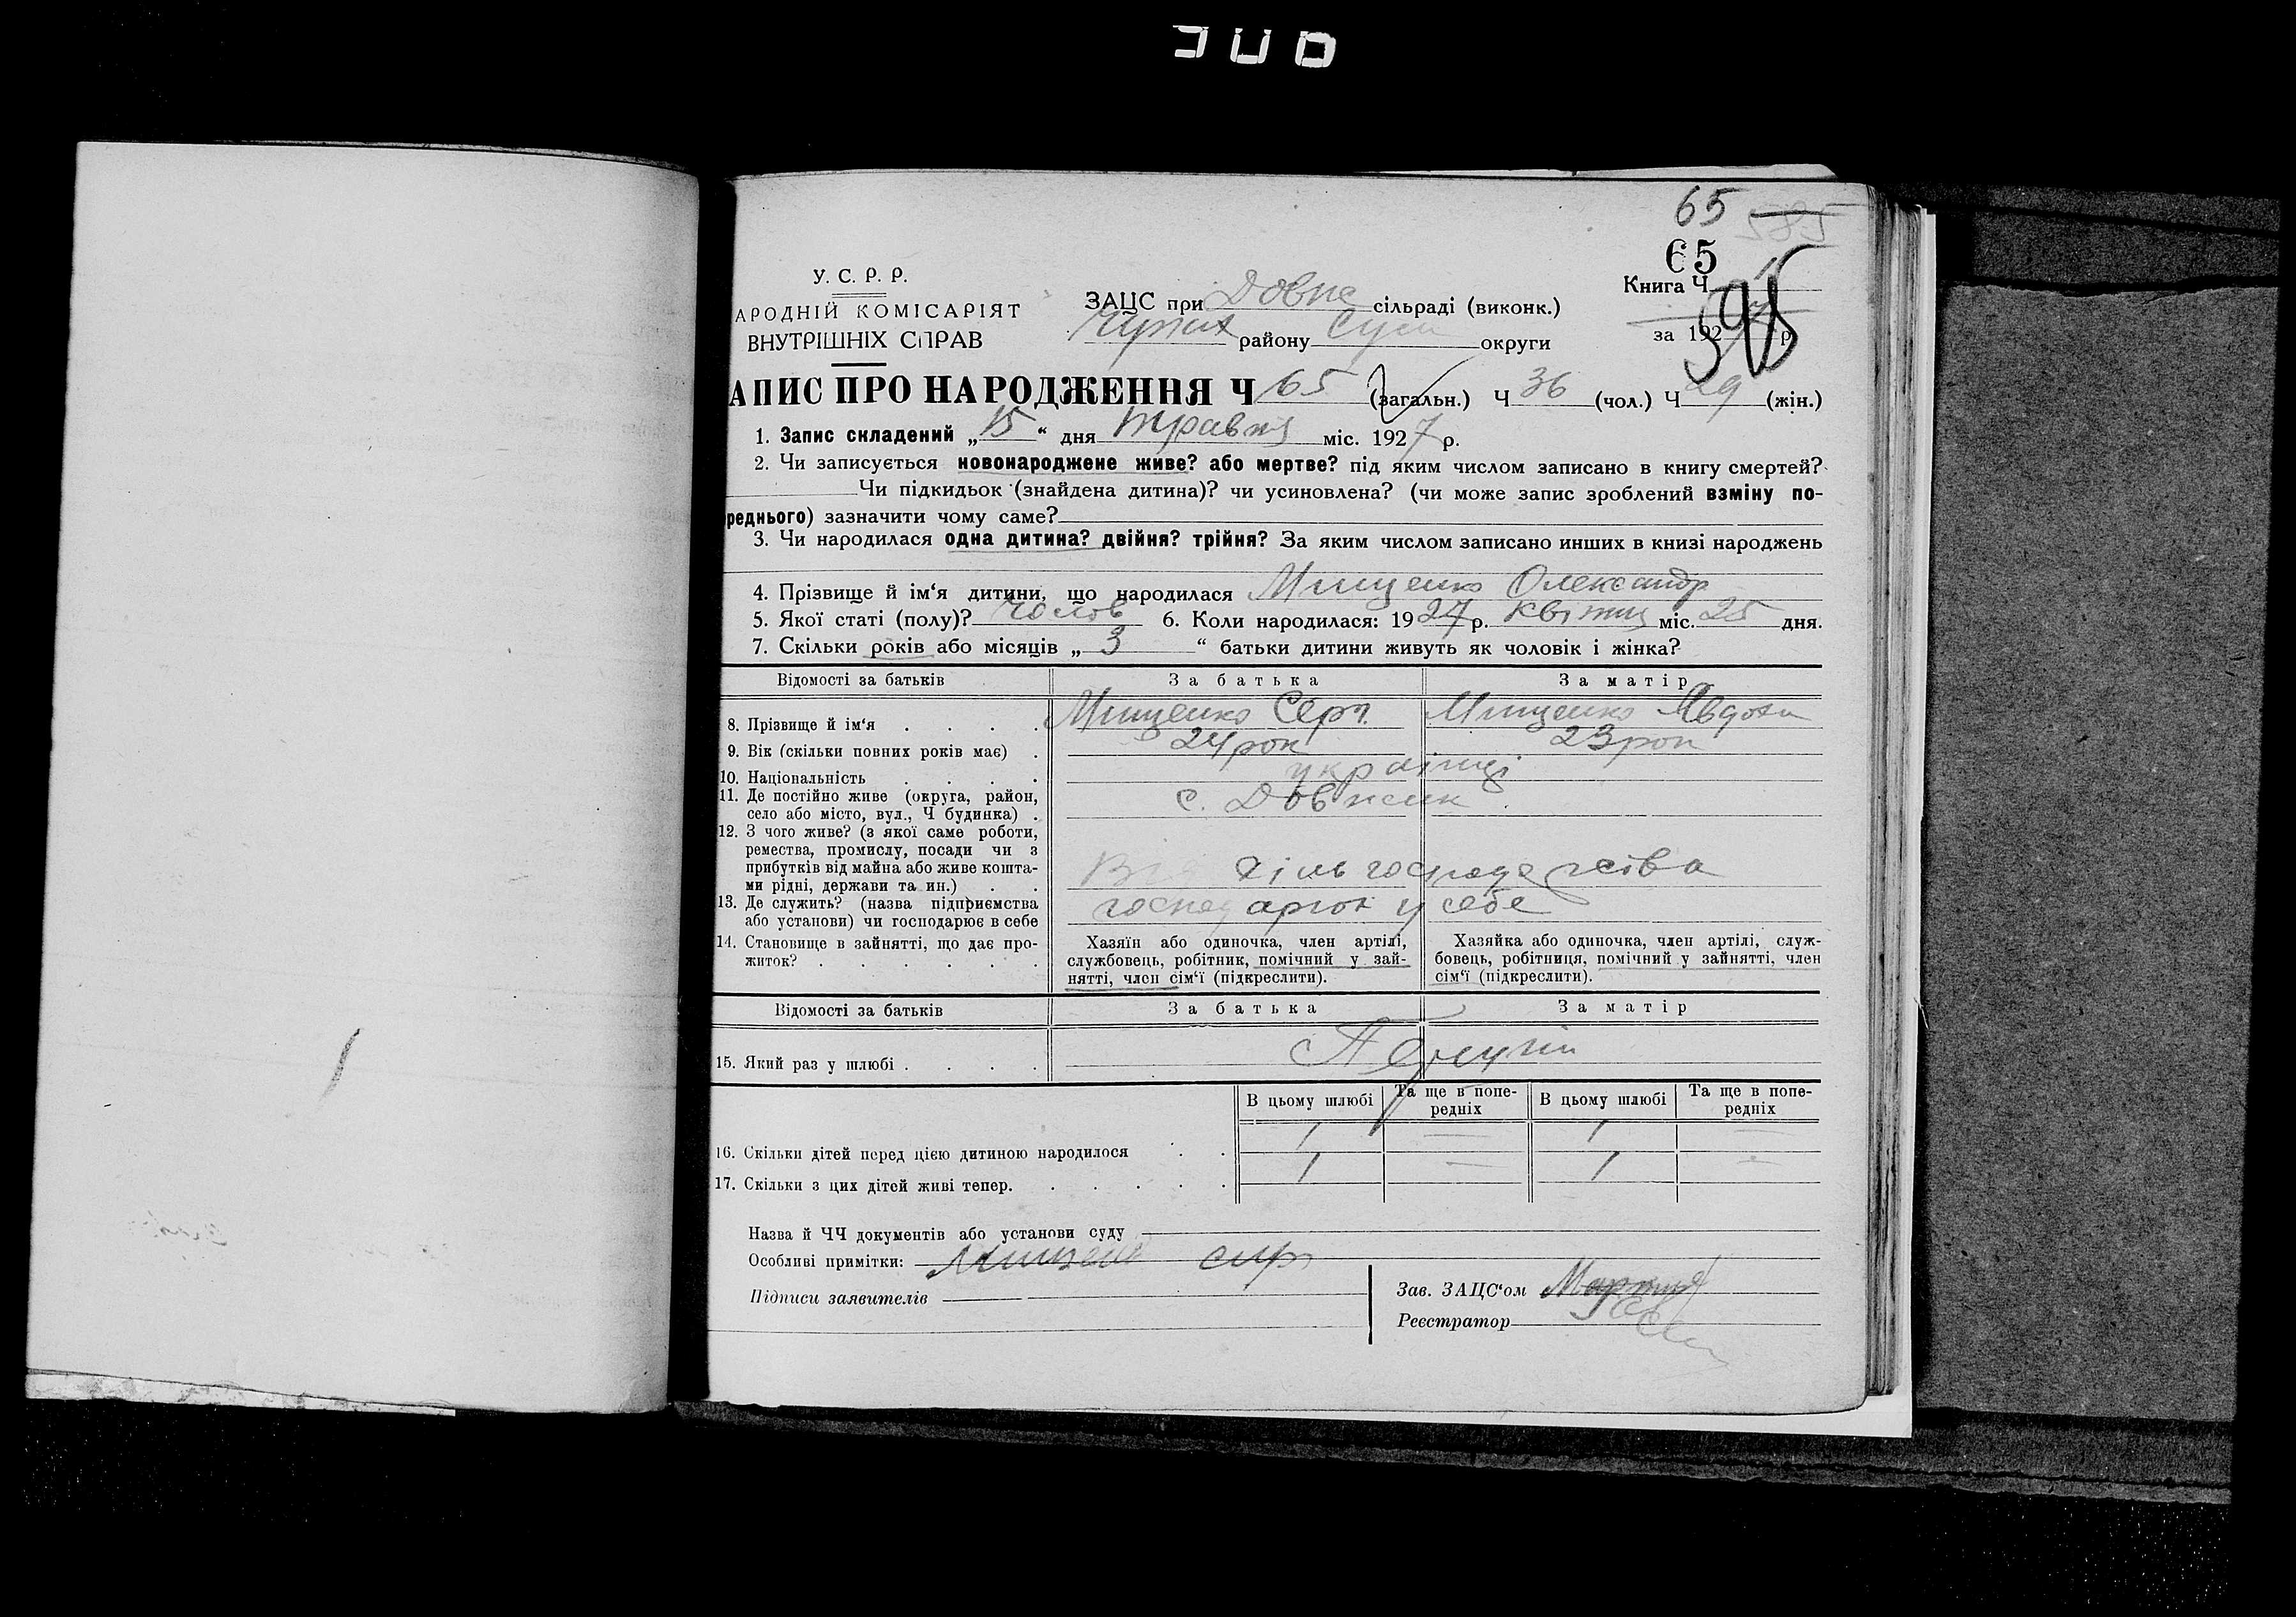 65 585
65
У. С. Р. Р.
АРОДНІЙ КОМІСАРІЯТ
ВНУТРІШНІХ СПРАВ
ЗАЦС при Довже сільраді (виконк.)
району Сум округи
Книга Ч
за 1927 р.
АПИС ПРО НАРОДЖЕННЯ Ч 65 (загальн.) Ч 36 (чол.) Ч 29 (жін.)
1. Запис складений „15“ дня травня міс. 1927 р.
2. Чи записується новонароджене живе? або мертве? під яким числом записано в книгу смертей?
Чи підкидьок (знайдена дитина)? чи усиновлена? (чи може запис зроблений взміну по-
реднього) зазначити чому саме?
3. Чи народилася одна дитина? двійня? трійня? За яким числом записано инших в книзі народжень
4. Прізвище й ім‘я дитини, що народилася Мищенко Олександр
5. Якої статі (полу)? Чолов 6. Коли народилася: 1927 р. Квітня міс. 25 дня.
7. Скільки років або місяців „ 3 “ батьки дитини живуть як чоловік і жінка?
Відомості за батьків За батька За матір
8. Прізвище й ім‘я . . . . Мищенко Серг. Мищенко Явдоха
9. Вік (скільки повних років має) . 24 рок 23 рок
10. Національність . . . . українці
11. Де постійно живе (округа, район, с. Довжик
село або місто, вул., Ч будинка) .
12. З чого живе? (з якої саме роботи,
ремества, промислу, посади чи з
прибутків від майна або живе кошта- Від сіль господарства
ми рідні, держави та ин.) . .
13. Де служить? (назва підприємства господарюї у себе
або установи) чи господарює в себе
14. Становище в зайнятті, що дає про- Хазяїн або одиночка, член артілі, Хазяйка або одиночка, член артілі, служ-
житок? . . . . . . службовець, робітник, помічний у зай- бовець, робітниця, помічний у зайнятті, член
нятті, член сім‘ї (підкреслити). сім‘ї (підкреслити).
Відомості за батьків За батька За матір
15. Який раз у шлюбі . . . . Перший
В цьому шлюбі Та ще в попе- В цьому шлюбі Та ще в попе-
редніх редніх
16. Скільки дітей перед цією дитиною народилося . . 1 — 1 —
17. Скільки з цих дітей живі тепер. . . . . . 1 — 1 —
Назва й ЧЧ документів або установи суду
Особливі примітки:
Підписи заявителів
Зав. ЗАЦС‘ом
Реєстратор